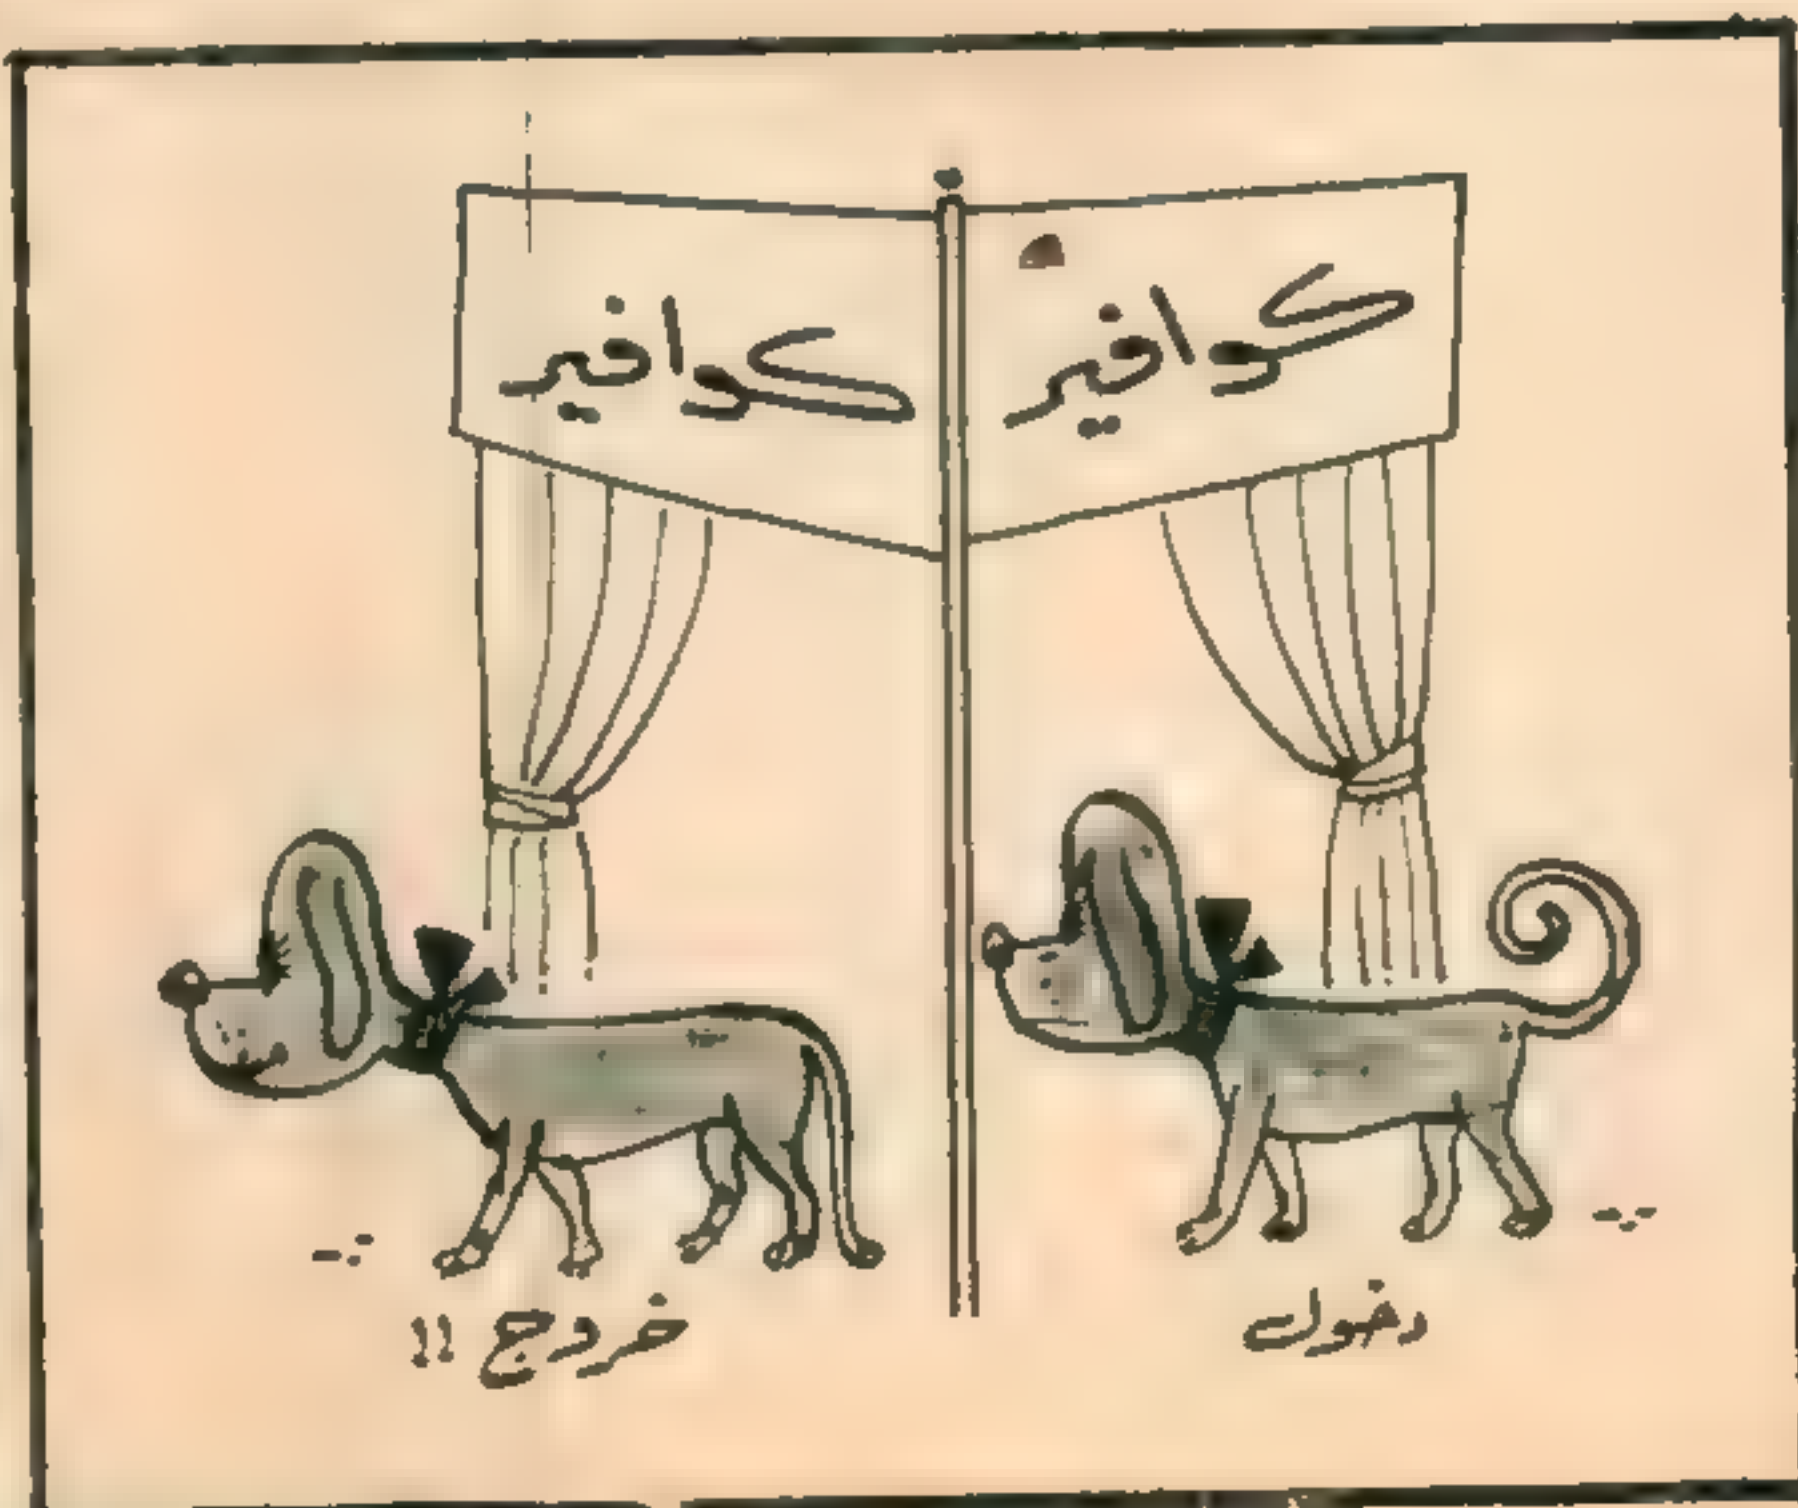 كوافير
كوافير
دخول
خروج !!